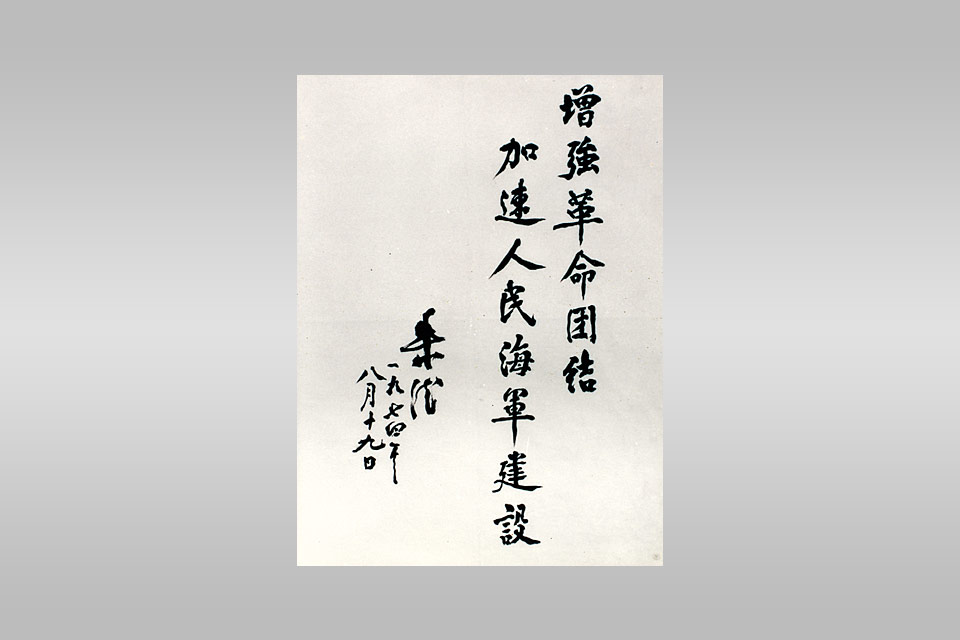 增強革命团结
加速人民海軍建設
朱德
一九七四年
八月十九日